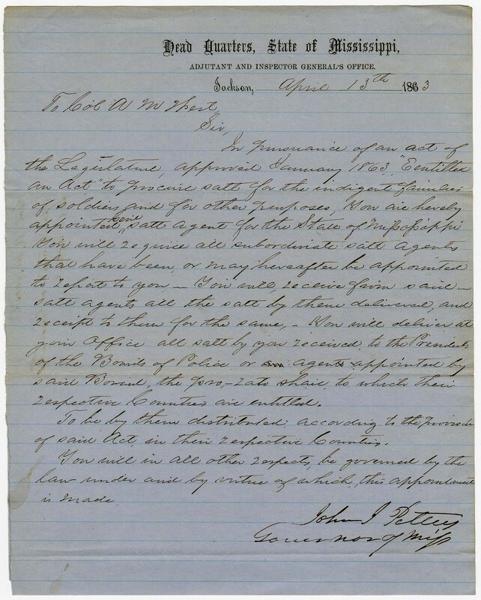 Head Quarters, State of Mississippi,
ADJUTANT AND INSPECTOR GENERAL'S OFFICE.
Jackson, April 13th 1863
To Col A M West
Sir,
In pursuance of an act of
the Legislature, approved January 1863, "Entitled
an Act" to procure salt for the indigent families
of soldiers, and for other purposes, You are hereby
appointed Genl salt agent for the State of Mississippi
You will require all subordinate salt agents
that have been, or may hereafter be appointed
to report to you — You will receive from said
salt agents all the salt by them delivered, and
receipt to them for the same, - You will deliver at
your Office all salt by you received, to the Presidents
of the Boards of Police or agents appointed by
said Board, the pro-rata share, to which their
respective Counties are entitled.
To be by them distributed according to the provisions
of said Act, in their respective Counties.
You will in all other respects, be governed by the
law under and by virtue of which, this appointment
is made
John J Pettus
Governor of Miss